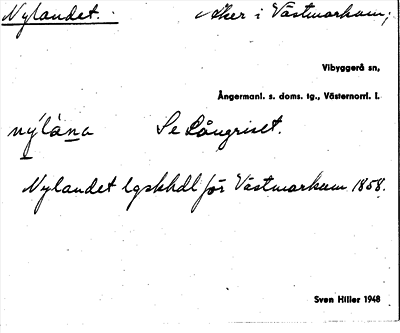 Nylandet. Åker i Västmarkum;
Vibyggerå sn,
Ångermanl. s. doms. tg., Västernorrl. l.
ny'låna Se Långriset.
Nylandet lgskhdl för Västmarkum 1858.
Sven Hiller 1948